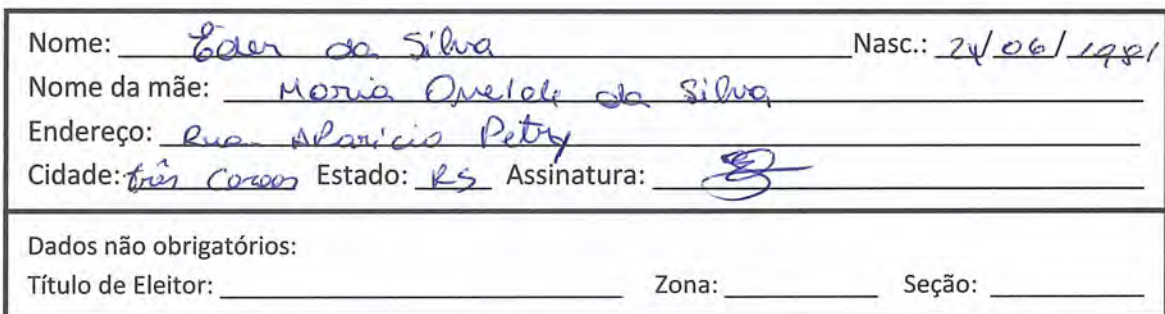 Nome: Eder da Silva Nasc.: 24/06/1981
Nome da mãe: Maria da Silva
Endereço: Rua Aparicio Petry
Cidade: três Coroas Estado: RS Assinatura:
Dados não obrigatórios:
Título de Eleitor: Zona: Seção: